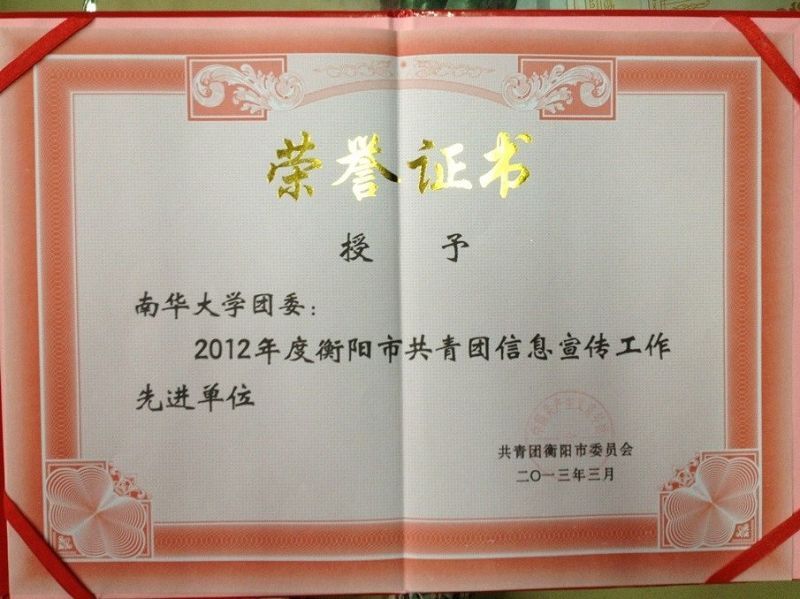 荣誉证书
授 予
南华大学团委：
2012年度衡阳市共青团信息宣传工作
先进单位
共青团衡阳市委员会
二〇一三年三月